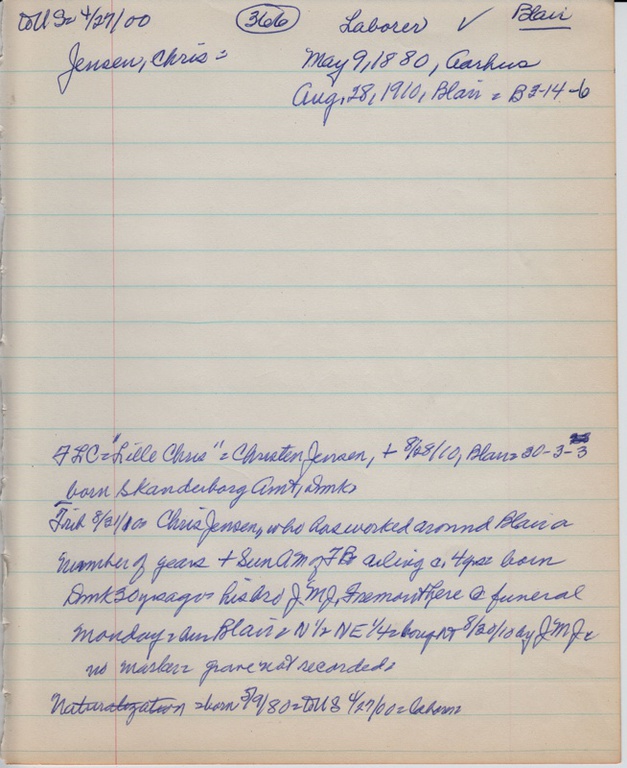 to US = 4/27/00 366 Laborer ✓ Blair
Jensen, Chris = May 9, 1880, Aarhus
Aug. 28, 1910, Blair = B 3-14-6
FLC = "Lille Chris" = Christen Jensen, + 8/28/10, Blair = 30-3-3
born Skanderborg Amt, Dmk
Trib 8/31/10 = Chris Jensen, who has worked around Blair a
number of years + Sun AM of TB ailing c. 4 yrs = born
Dmk 30 yrs ago = his bro J.M.J. Fremont here to funeral
Monday = bur Blair = N 1/2 NE 1/4 = bought 8/30/10 by J.M.J. =
no marker = grave not recorded
Naturalization = born 5/9/80 = to US 4/27/00 = laborer